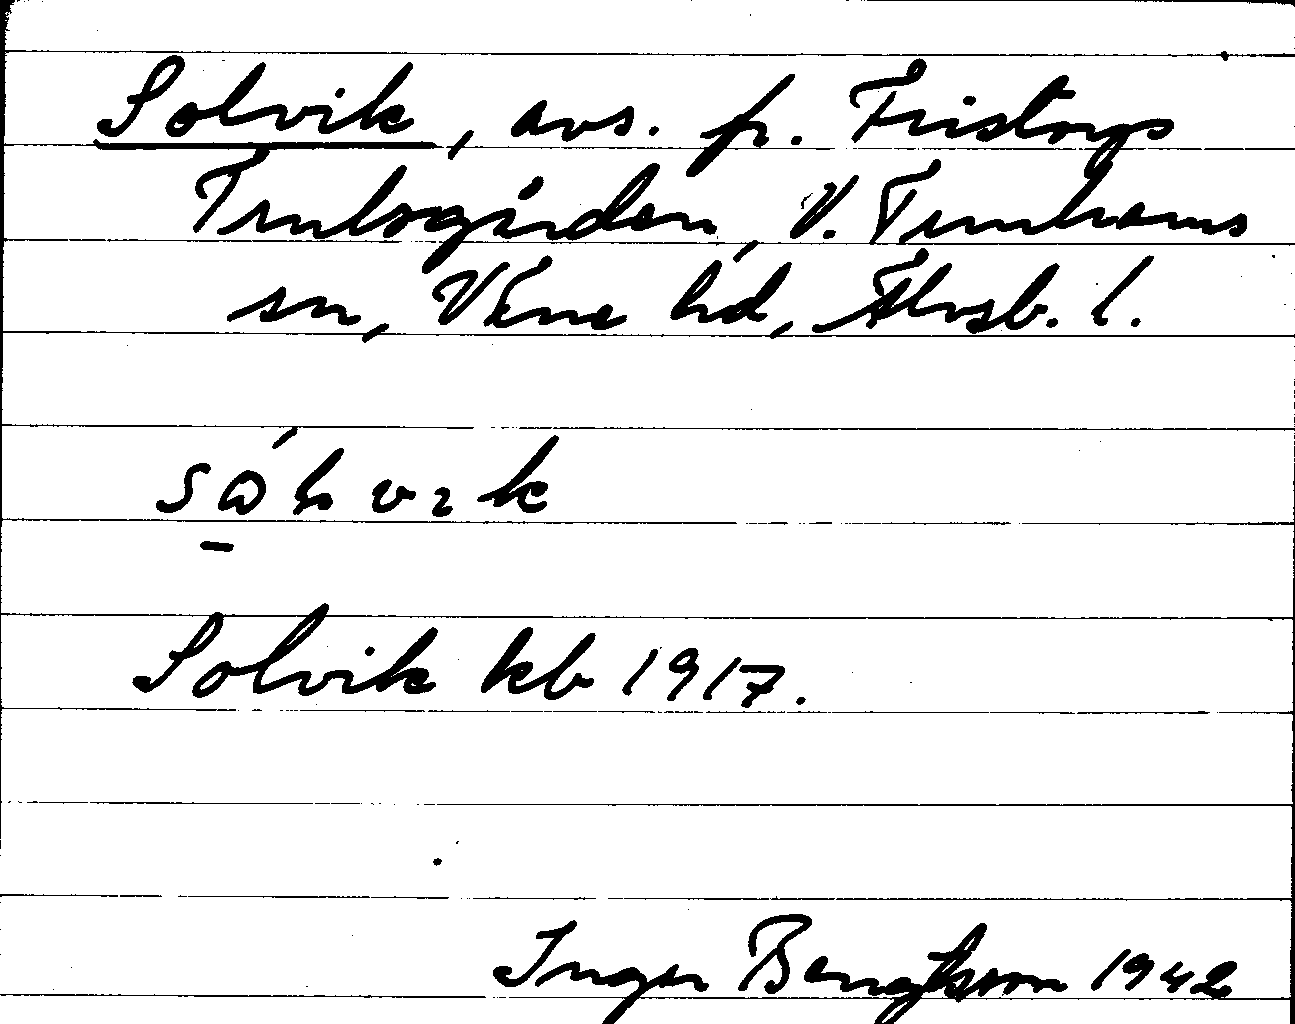 Solvik, avs. fr. Fristorps
Trulsgården, V. Tunhems
sn, Väne hd, Älvsb. l.
Solvik kb 1917.
Inger Bengtsson 1942